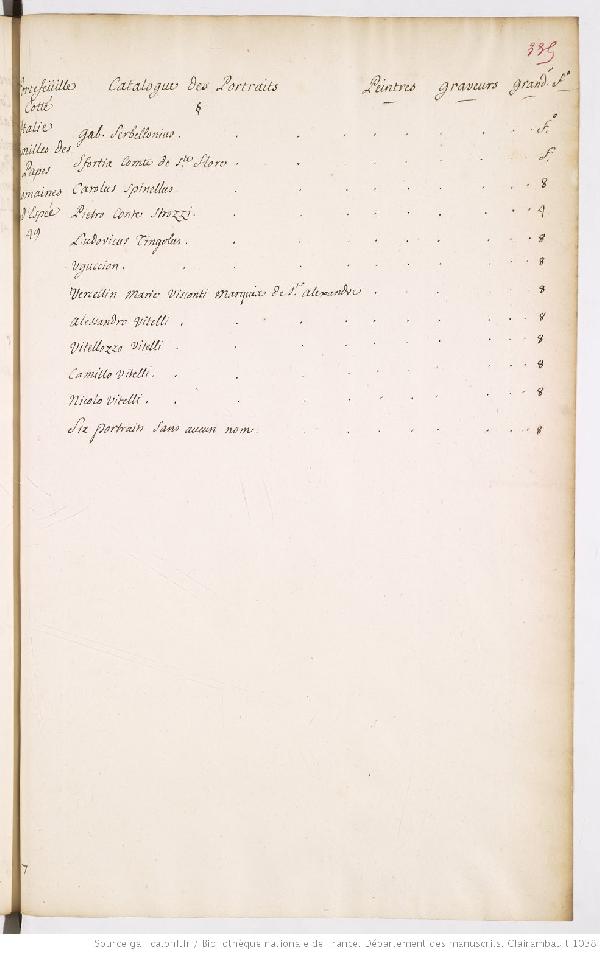 335
Catalogue des Portraits Peintres graveurs grand.r f.o
Cotté
§
Gab. Serbellonius . . . . . . . . . . f.o
milles des
Sfortia Comte de S.te Flore . . . . . . . . . f.
Papes
Carolus Spinellus . . . . . . . . . 8
Pietro Conte Strozzi . . . . . . . . . 4
d'Espée
49
Ludovicus Tingolus . . . . . . . . . 8
Uguccion . . . . . . . . . 8
Vercellin Marie Visconti Marquis de S.t Alexandre . . . . . . 8
Alessandro Vitelli . . . . . . . . . 8
Vitellozzo Vitelli . . . . . . . . . 8
Camillo Vitelli . . . . . . . . . 8
Nicolo Vitelli . . . . . . . . . 8
Six portraits sans aucun nom . . . . . . . . 8
Source gallica.bnf.fr / Bibliothèque nationale de France. Département des manuscrits. Clairambault 1038